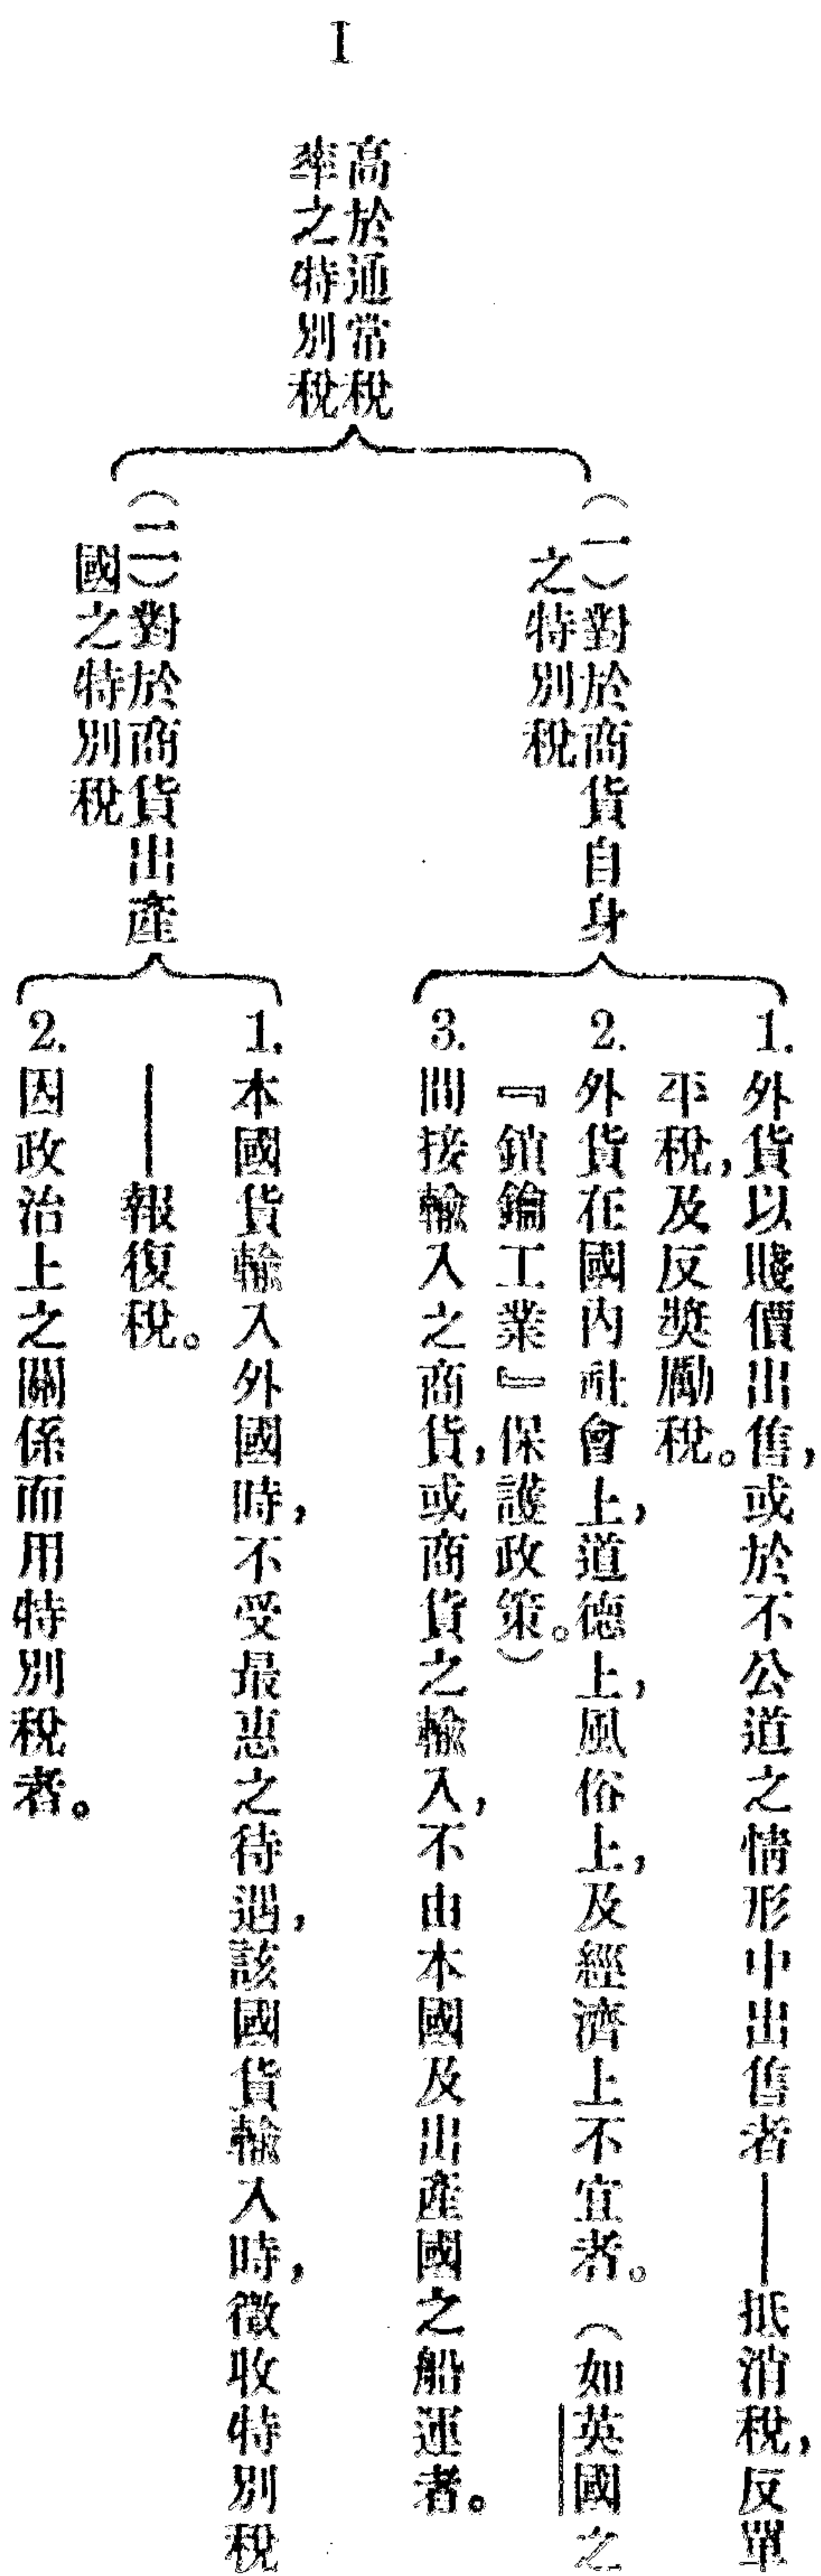 I
高於通常稅
率之特別稅
（一）對於商貨自身
之特別稅
1. 外貨以賤價出售，或於不公道之情形中出售者——抵消稅，反單
平稅，及反獎勵稅。
2. 外貨在國內社會上，道德上，風俗上，及經濟上不宜者。（如英國之
『鎖鑰工業』保護政策。）
3. 間接輸入之商貨，或商貨之輸入，不由本國及出產國之船運者。
（二）對於商貨出產
國之特別稅
1. 本國貨輸入外國時，不受最惠之待遇，該國貨輸入時，徵收特別稅
——報復稅。
2. 因政治上之關係而用特別稅者。